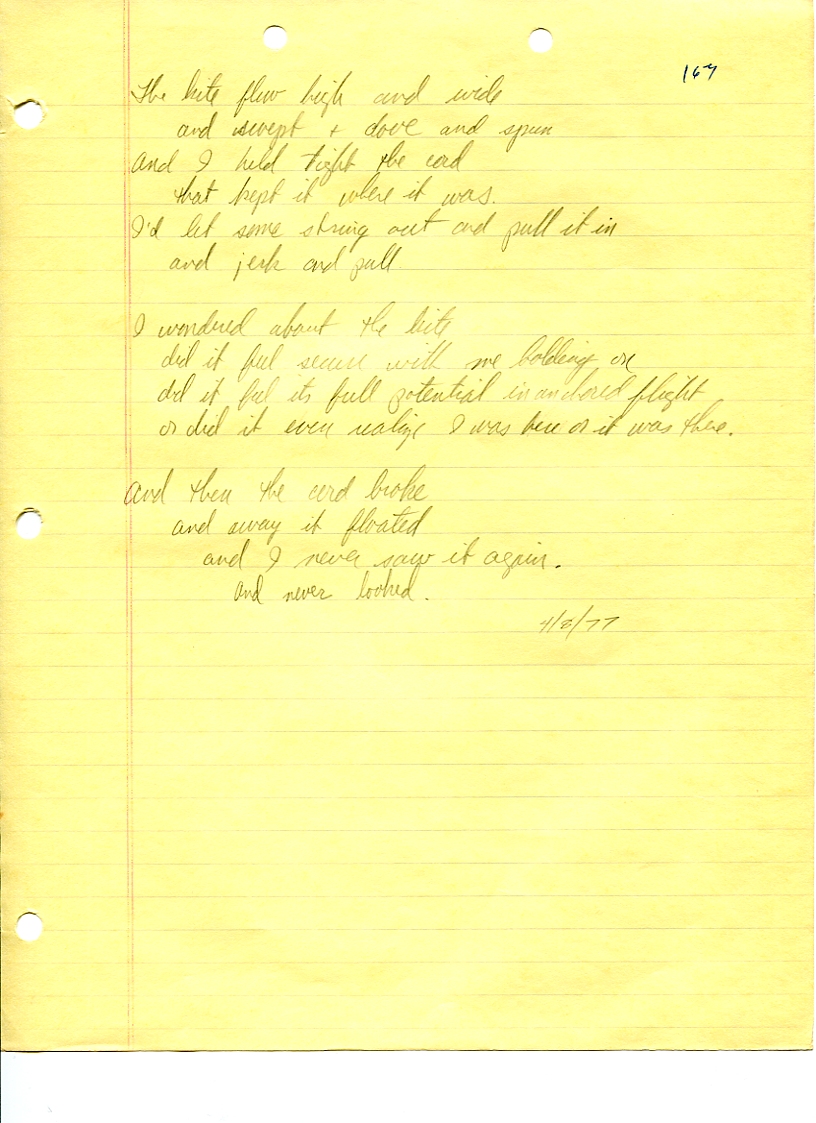 167
The kite flew high and wide
and swept + dove and spun
And I held tight the cord
that kept it where it was.
I'd let some string out and pull it in
and jerk and pull

I wondered about the kite
did it feel secure with me holding on
did it feel its full potential in anchored flight
or did it even realize I was here or it was there.

And then the cord broke
and away it floated
and I never saw it again.
and never looked.
4/8/77